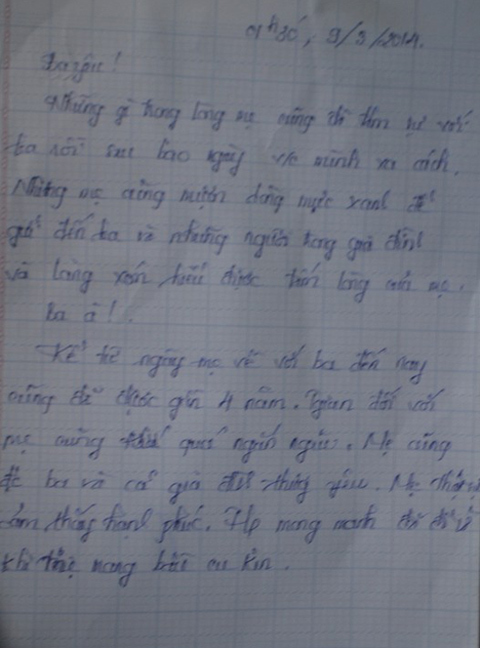 01h30', 9/3/2014.
Ba yêu!
Những gì trong lòng mẹ cũng đã tâm sự với
ba rồi sau bao ngày v/c mình xa cách.
Nhưng mẹ cũng mượn dòng mực xanh để
gửi đến ba và những người trong gia đình
và làng xóm hiểu được tấm lòng của mẹ.
Ba à!
Kể từ ngày mẹ về với ba đến nay
cũng đã được gần 4 năm. đối với
mẹ cũng quá ngắn ngủi. Mẹ cũng
đc ba và cả gia đình thương yêu. Mẹ thật
cảm thấy hạnh phúc. mong manh
khi mang